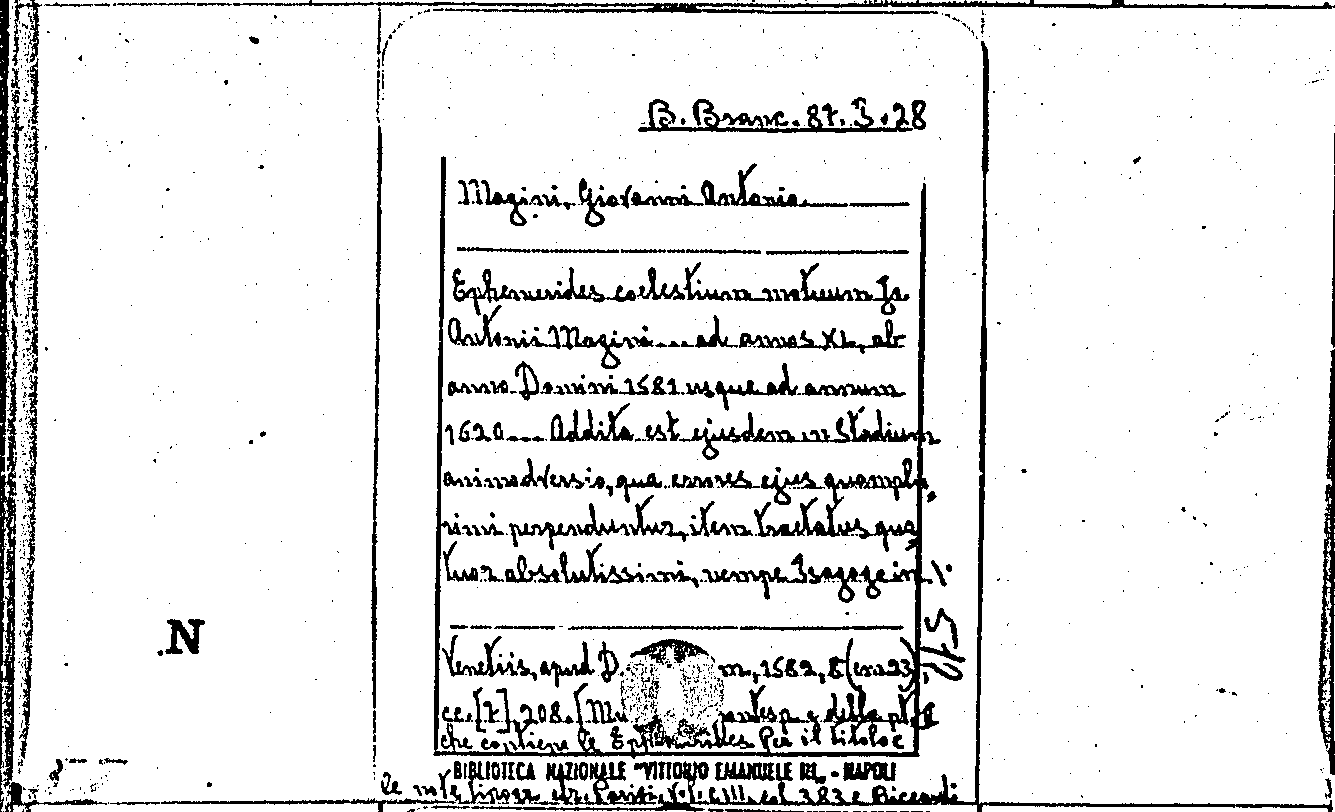 B. Branc. 87. J. 28
Magini, Giovanni Antonio.
Ephemerides coelestium motuum Jo.
Antonii Magini... ad annos XL, ab
anno Domini 1581 usque ad annum
1620... Addita est ejusdem in Stadium
animadversio, qua errores ejus quamplu
rimi perpenduntur, item tractatus qua
tuor absolutissimi, nempe Isagoge in ./.
Venetiis, apud D. m, 1582, 8 (cm 23)
cc. [7], 208. [ antesp. della pte
che contiene le Ephemerides Per il titolo e
BIBLIOTECA NAZIONALE "VITTORIO EMANUELE III" - NAPOLI
le note col. 383 e Riccardi
N